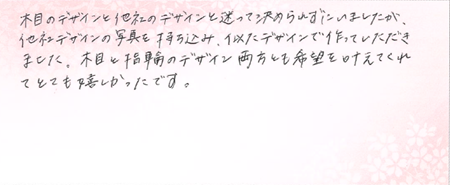 木目のデザインと他社のデザインと迷って決められずにいましたが、
他社デザインの写真を持ち込み、似たデザインで作っていただき
ました。木目と指輪のデザイン両方とも希望を叶えてくれ
てとても嬉しかったです。